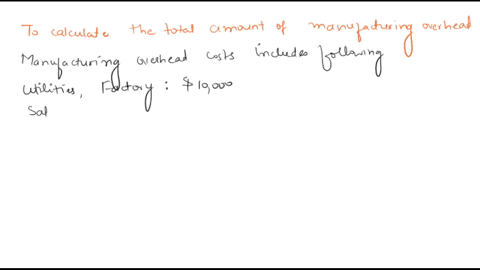 To calculate the total amount of manufacturing overhead
Manufacturing overhead costs includes following
Utilities, Factory : $10,000
Sal